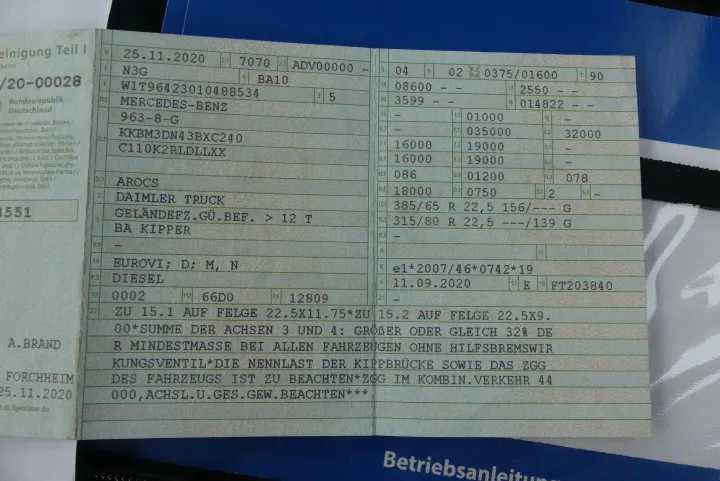 einigung Teil I
/20-00028
Bundesrepublik
Deutschland
3551
A.BRAND
FORCHHEIM
25.11.2020
25.11.2020 7070 ADV00000 -
N3G BA10
W1T96423010488534 5
MERCEDES-BENZ
963-8-G
KKBM3DN43BXC240
C110K2RLDLLXX
AROCS
DAIMLER TRUCK
GELÄNDEFZ.GÜ.BEF. > 12 T
BA KIPPER
-
EUROVI; D; M, N
DIESEL
0002 66D0 12809
04 02 0375/01600 90
08600 - - 2550 - -
3599 - - 014822 - -
- 01000 -
- 035000 32000
16000 19000 -
16000 19000 -
086 01200 078
18000 0750 2 -
385/65 R 22,5 156/--- G
315/80 R 22,5 ---/139 G
-
e1*2007/46*0742*19
11.09.2020 E FT203840
-
ZU 15.1 AUF FELGE 22.5X11.75*ZU 15.2 AUF FELGE 22.5X9.
00*SUMME DER ACHSEN 3 UND 4: GRÖßER ODER GLEICH 32% DE
R MINDESTMASSE BEI ALLEN FAHRZEUGEN OHNE HILFSBREMSWIR
KUNGSVENTIL*DIE NENNLAST DER KIPPBRÜCKE SOWIE DAS ZGG
DES FAHRZEUGS IST ZU BEACHTEN*ZGG IM KOMBIN.VERKEHR 44
000,ACHSL.U.GES.GEW.BEACHTEN***
Betriebsanleitung